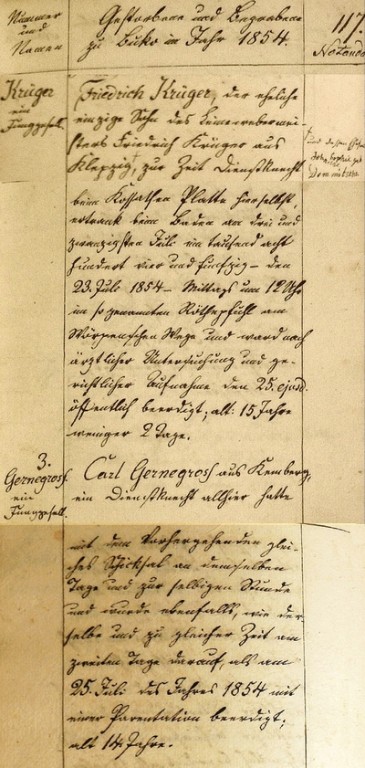 Nummer und Namen
Gestorbene und Begrabene
zu Buko im Jahr 1854.
117.
Notanda
Krüger
ein
Junggesell.
Friedrich Krüger, der eheliche
einzige Sohn des Leinewebermei-
sters Friedrich Krüger aus
Klepzig, zur Zeit Dienstknecht
beim Kossathen Platte hierselbst,
ertrank beim Baden am drei und
zwanzigsten Juli ein tausend acht
hundert vier und funfzig – den
23. Juli 1854 – Mittags um 12 Uhr
im sogenannten Röthepfuhl am
Wörpenschen Wege und ward nach
ärztlicher Untersuchung und ge-
richtlicher Aufnahme den 25. ejusd.
öffentlich beerdigt; alt: 15 Jahre
weniger 2 Tage.
und dessen
3.
Gernegross.
ein
Junggesell.
Carl Gernegross aus Kemberg,
ein Dienstknecht allhier hatte
mit dem Vorhergehenden glei-
ches Schicksal an demselben
Tage und zur selbigen Stunde
und wurde ebenfalls, wie der-
selbe und zu gleicher Zeit am
zweiten Tage darauf, als am
25. Juli des Jahres 1854 mit
einer Parentation beerdigt;
alt 14 Jahre.